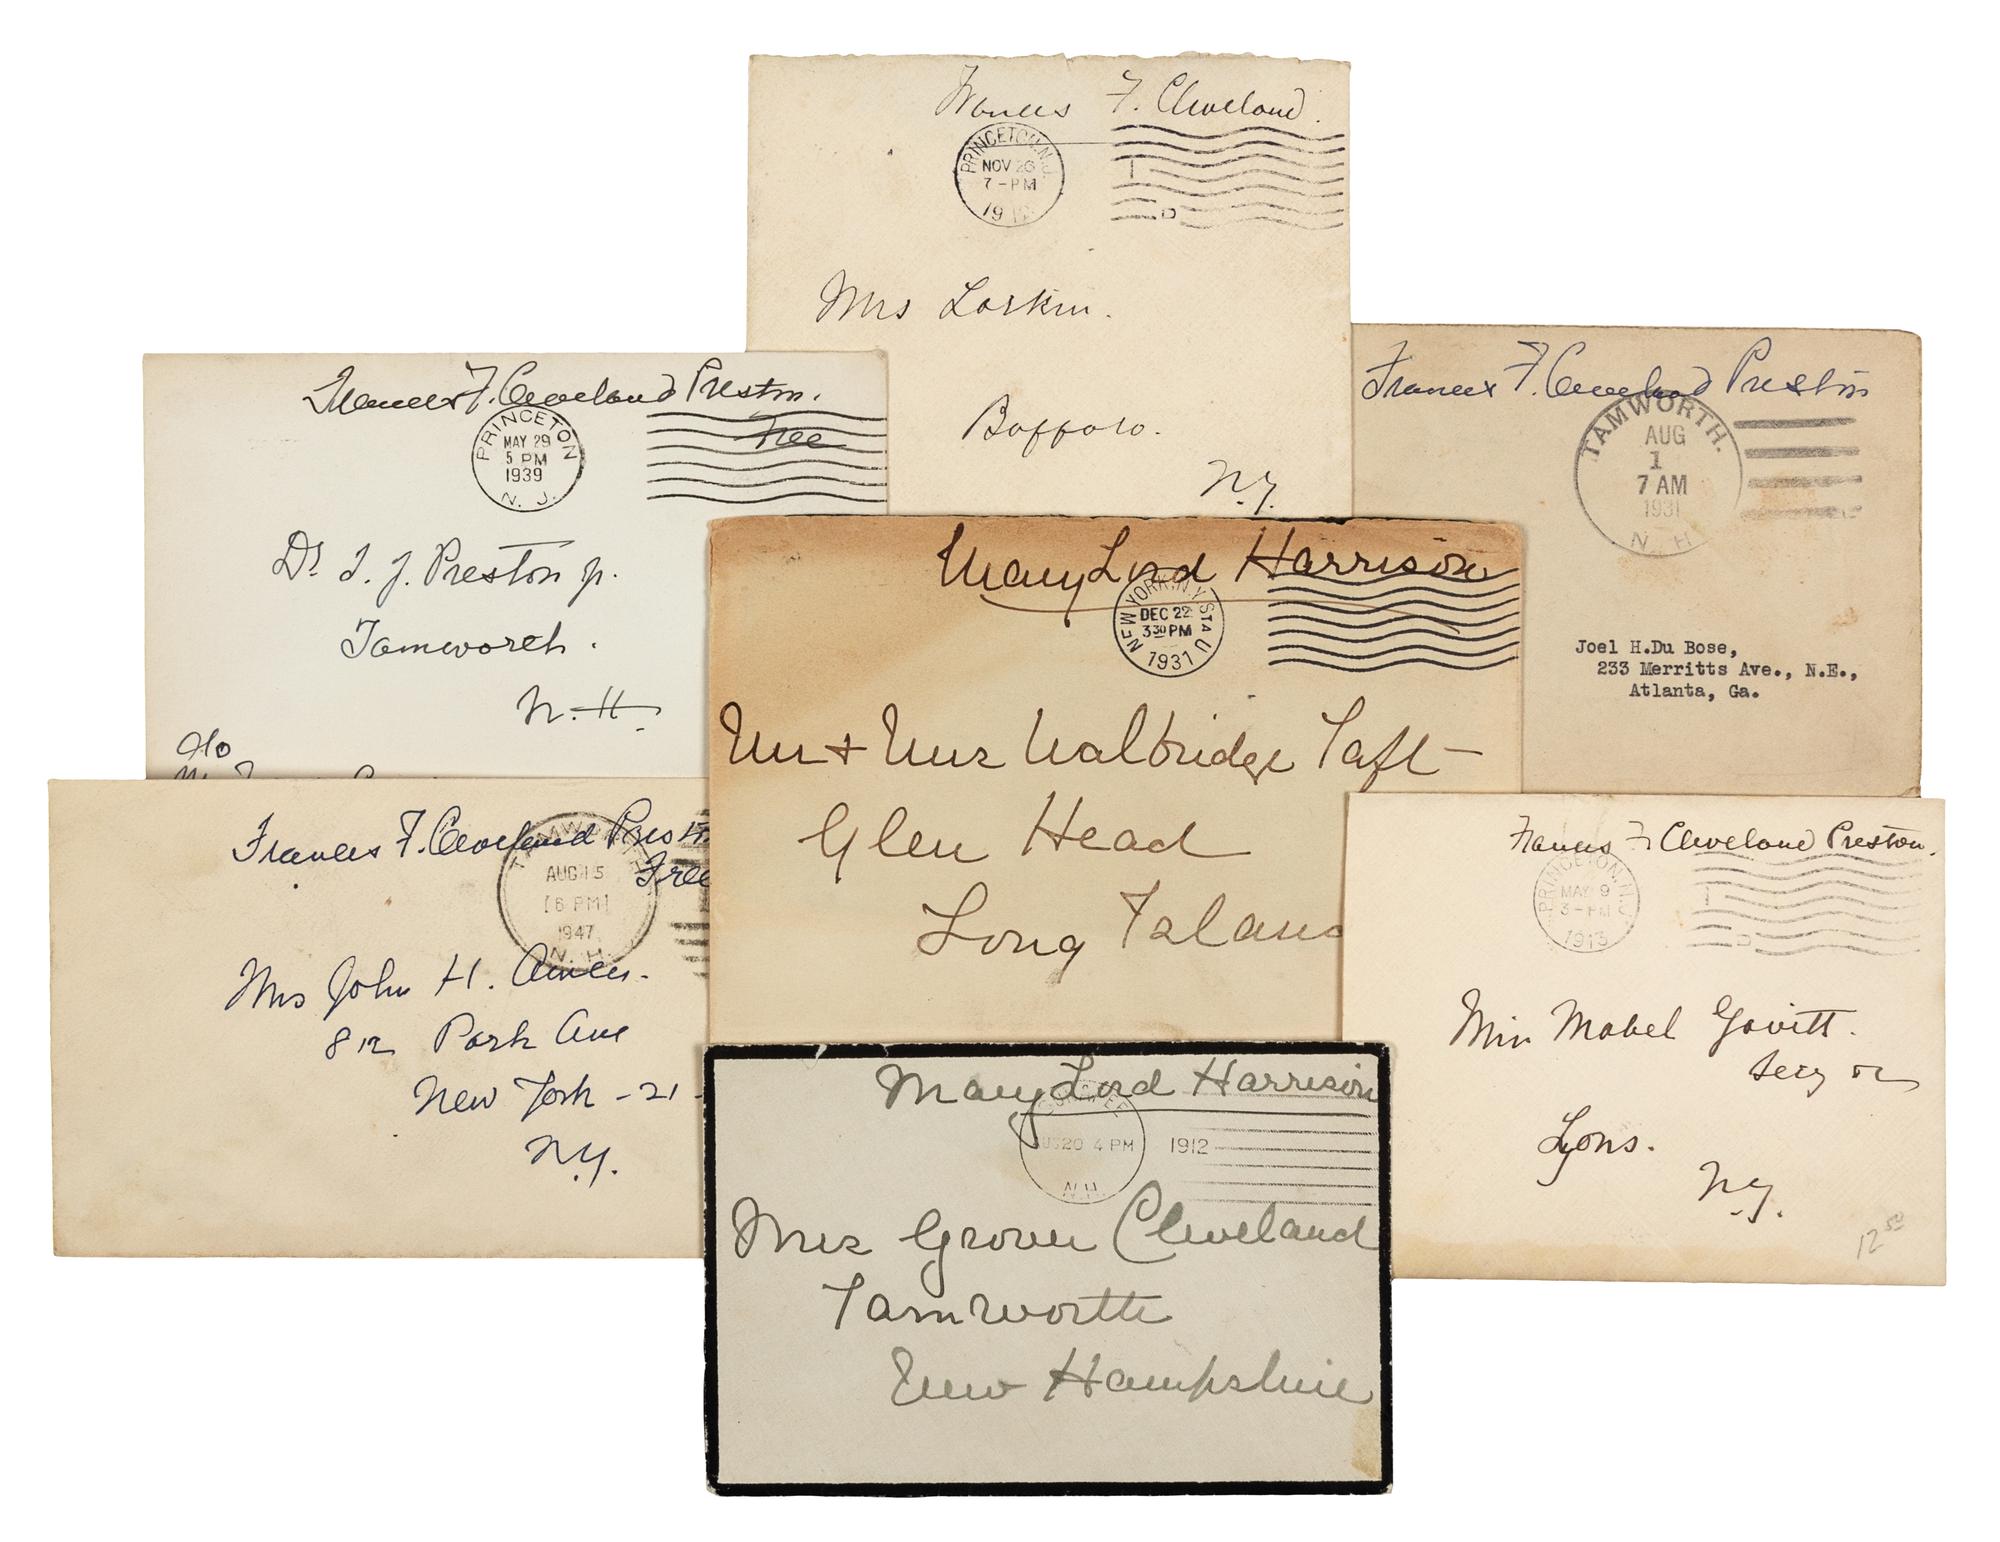 Frances F. Cleveland.
PRINCETON, N.J.
NOV 26
7-PM
Mrs Larkin.
Buffalo.
N.Y.
Frances F. Cleveland Preston.
Free
PRINCETON
MAY 29
5 PM
1939
N. J.
Dr. T. J. Preston Jr.
Tamworth.
N.H.
c/o
Frances F. Cleveland Preston
TAMWORTH.
AUG
1
7 AM
1931
N. H
Joel H.Du Bose,
233 Merritts Ave., N.E.,
Atlanta, Ga.
Mary Lord Harrison
NEW YORK, N.Y. STA U
DEC 22
3 30 PM
1931
Mr & Mrs Walbridge Taft -
Glen Head
Long Island
Frances F. Cleveland Preston
Free
TAMWORTH
AUG 15
6 PM
1947
N. H.
Mrs John H. Amen.
812 Park Ave
New York - 21 -
N.Y.
Frances F Cleveland Preston.
PRINCETON, N.J.
MAY 9
3-PM
1913
Miss Mabel Gavitt.
Secy
Lyons.
N.Y.
12 50
Mary Lord Harrison
20 4 PM 1912
N.H.
Mrs Grover Cleveland
Tamworth
New Hampshire